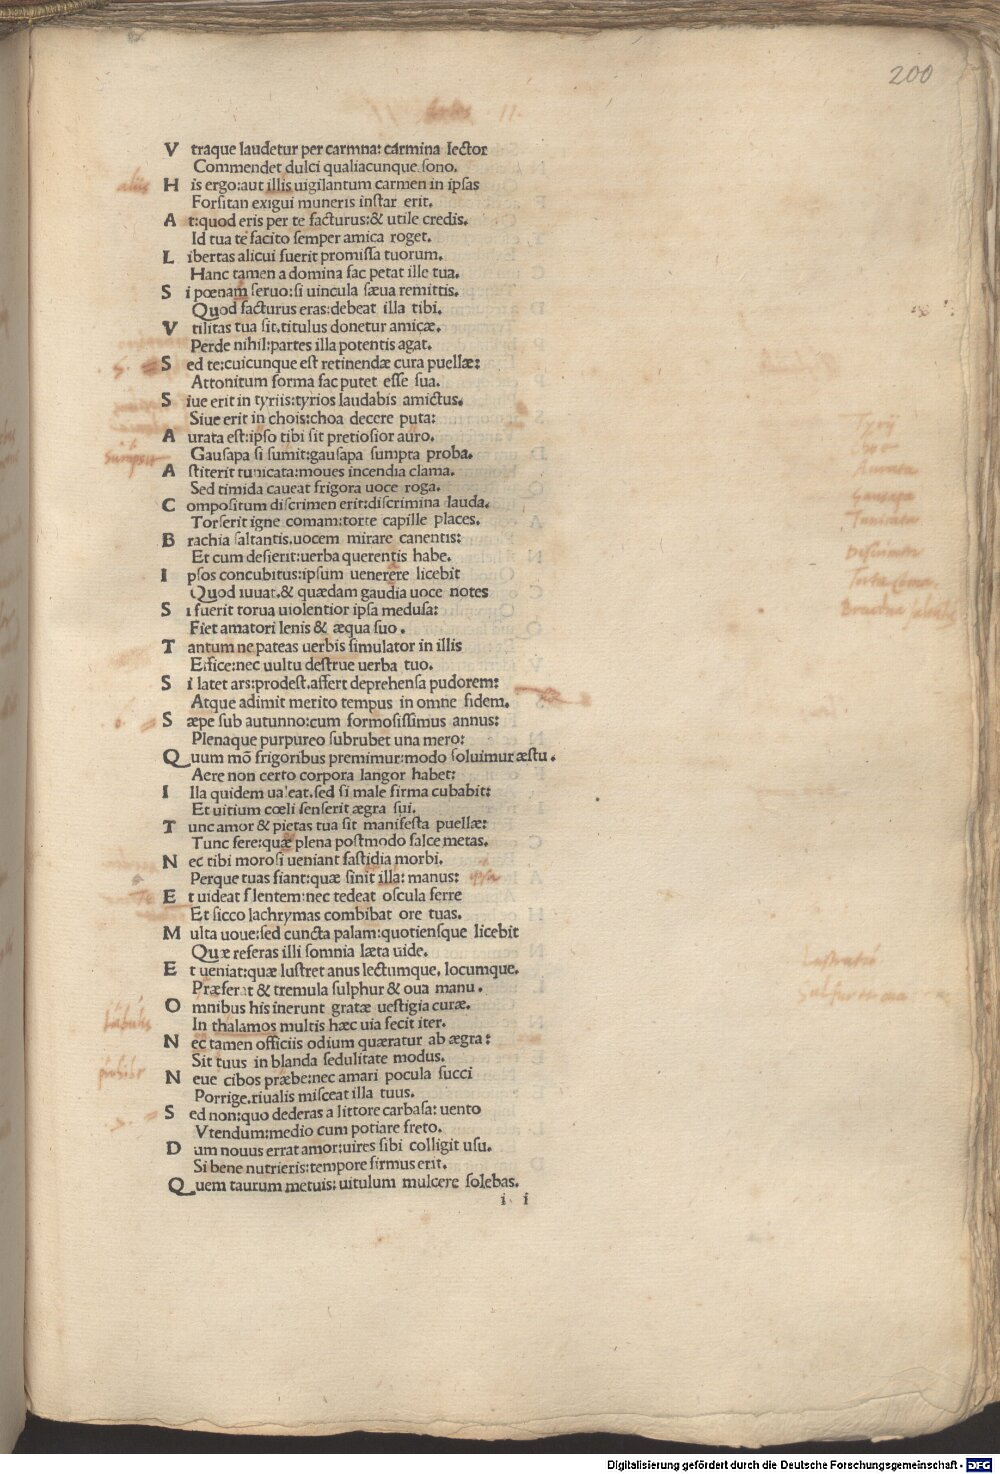 200
V traque laudetur per carmna: carmina lector
Commendet dulci qualiacunque sono.
aliis
H is ergo: aut illis uigilantum carmen in ipsas
Forsitan exigui muneris instar erit.
A t: quod eris per te facturus: & utile credis.
Id tua te facito semper amica roget.
L ibertas alicui fuerit promissa tuorum.
Hanc tamen a domina fac petat ille tua.
S i pœnam seruo: si uincula sæua remittis.
Quod facturus eras: debeat illa tibi.
V tilitas tua sit. titulus donetur amicæ.
Perde nihil: partes illa potentis agat.
S ed te: cuicunque est retinendæ cura puellæ:
Attonitum forma fac putet esse sua.
S iue erit in tyriis: tyrios laudabis amictus.
Siue erit in chois: choa decere puta:
A urata est: ipso tibi sit pretiosior auro.
Gausapa si sumit: gausapa sumpta proba.
A stiterit tunicata: moues incendia clama.
Sed timida caueat frigora uoce roga.
C ompositum discrimen erit: discrimina lauda.
Torserit igne comam: torte capille places.
B rachia saltantis. uocem mirare canentis:
Et cum desierit: uerba querentis habe.
I psos concubitus: ipsum uenerere licebit
Quod iuuat. & quædam gaudia uoce notes
S i fuerit torua uiolentior ipsa medusa:
Fiet amatori lenis & æqua suo.
T antum ne pateas uerbis simulator in illis
Effice: nec uultu destrue uerba tuo.
S i latet ars: prodest. affert deprehensa pudorem:
Atque adimit merito tempus in omne fidem.
S æpe sub autunno: cum formosissimus annus:
Plenaque purpureo subrubet una mero:
Q uum mõ frigoribus premimur: modo soluimur æstu.
Aere non certo corpora langor habet:
I lla quidem ualeat. sed si male firma cubabit:
Et uitium cœli senserit ægra sui.
T unc amor & pietas tua sit manifesta puellæ:
Tunc sere: quæ plena postmodo falce metas.
N ec tibi morosi ueniant fastidia morbi.
Perque tuas fiant: quæ sinit illa: manus:
E t uideat flentem: nec tedeat oscula ferre
Et sicco lachrymas combibat ore tuas.
M ulta uoue: sed cuncta palam: quotiensque licebit
Quæ referas illi somnia læta uide.
E t ueniat: quæ lustret anus lectumque, locumque.
Præferat & tremula sulphur & oua manu.
O mnibus his inerunt gratæ uestigia curæ.
In thalamos multis hæc uia fecit iter.
N ec tamen officiis odium quæratur ab ægra:
Sit tuus in blanda sedulitate modus.
N eue cibos præbe: nec amari pocula succi
Porrige. riualis misceat illa tuus.
S ed non: quo dederas a littore carbasa: uento
Vtendum: medio cum potiare freto.
D um nouus errat amor: uires sibi colligit usu.
Si bene nutrieris: tempore firmus erit.
Q uem taurum metuis: uitulum mulcere solebas.
i i
Tyrij
Aurata
Gausapa
Tunicata
Torta coma
Digitalisierung gefördert durch die Deutsche Forschungsgemeinschaft - DFG